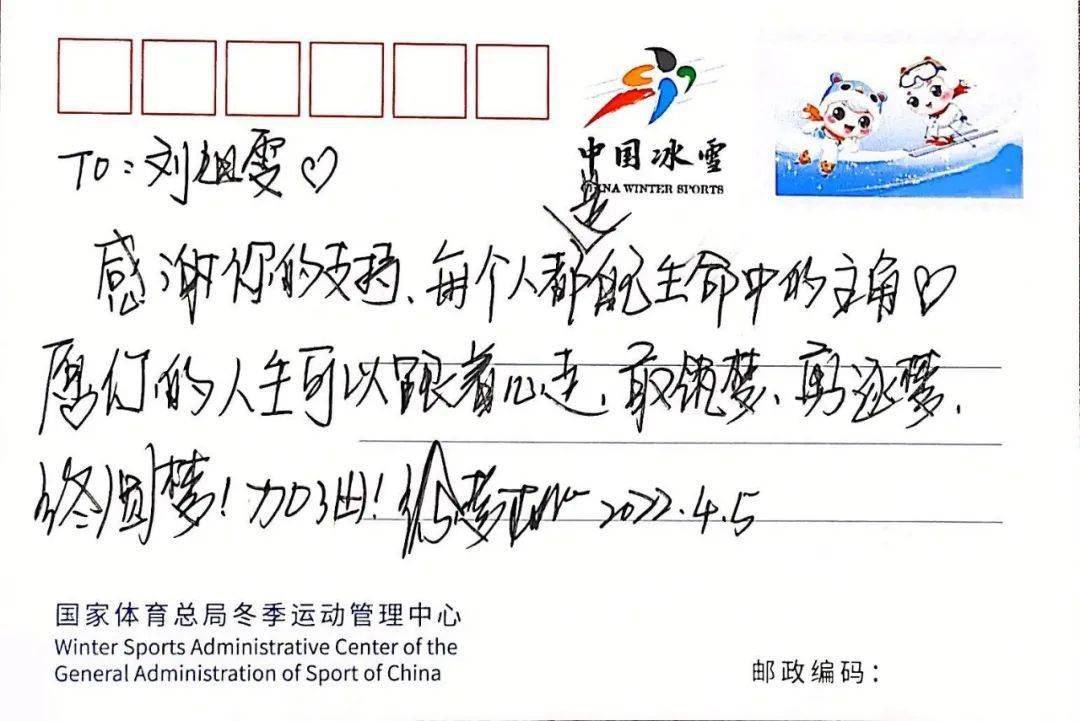 中国冰雪
CHINA WINTER SPORTS
TO:刘祖雯♡
感谢你的支持、每个人都是自己生命中的主角♡
愿你的人生可以跟着心走、敢筑梦、勇逐梦、
终圆梦!加油!徐梦桃 2022.4.5
国家体育总局冬季运动管理中心
Winter Sports Administrative Center of the
General Administration of Sport of China
邮政编码: